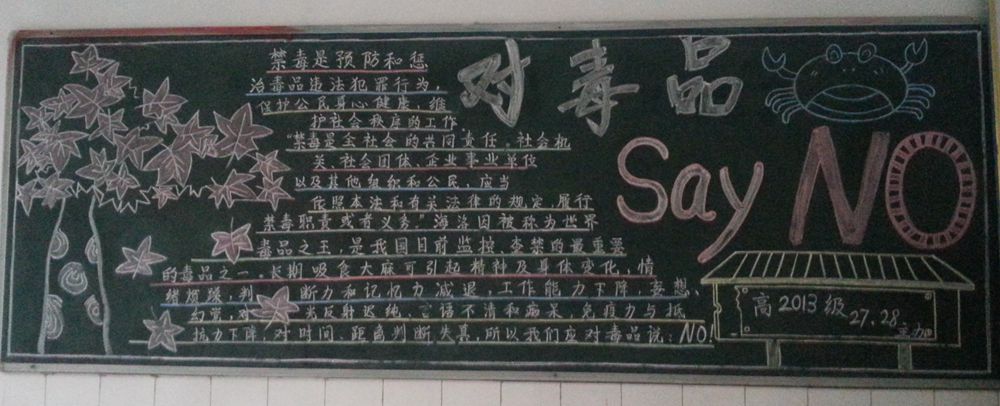 禁毒是预防和惩
治毒品违法犯罪行为,
保护公民身心健康,维
护社会秩序的工作
"禁毒是全社会的共同责任。社会机
关、社会团体、企业事业单位
以及其他组织和公民,应当
依照本法和有关法律的规定,履行
禁毒职责或者义务。"海洛因被称为世界
毒品之王,是我国目前监控、查禁的最重要
的毒品之一。长期吸食大麻可引起精神及身体变化,情
绪烦躁,判断力和记忆力减退,工作能力下降,妄想、
幻觉,对光反射迟纯、言语不清和痴呆,免疫力与抵
抗力下降,对时间、距离判断失真,所以我们应对毒品说:NO!
对毒品
Say NO
高2013级27、28